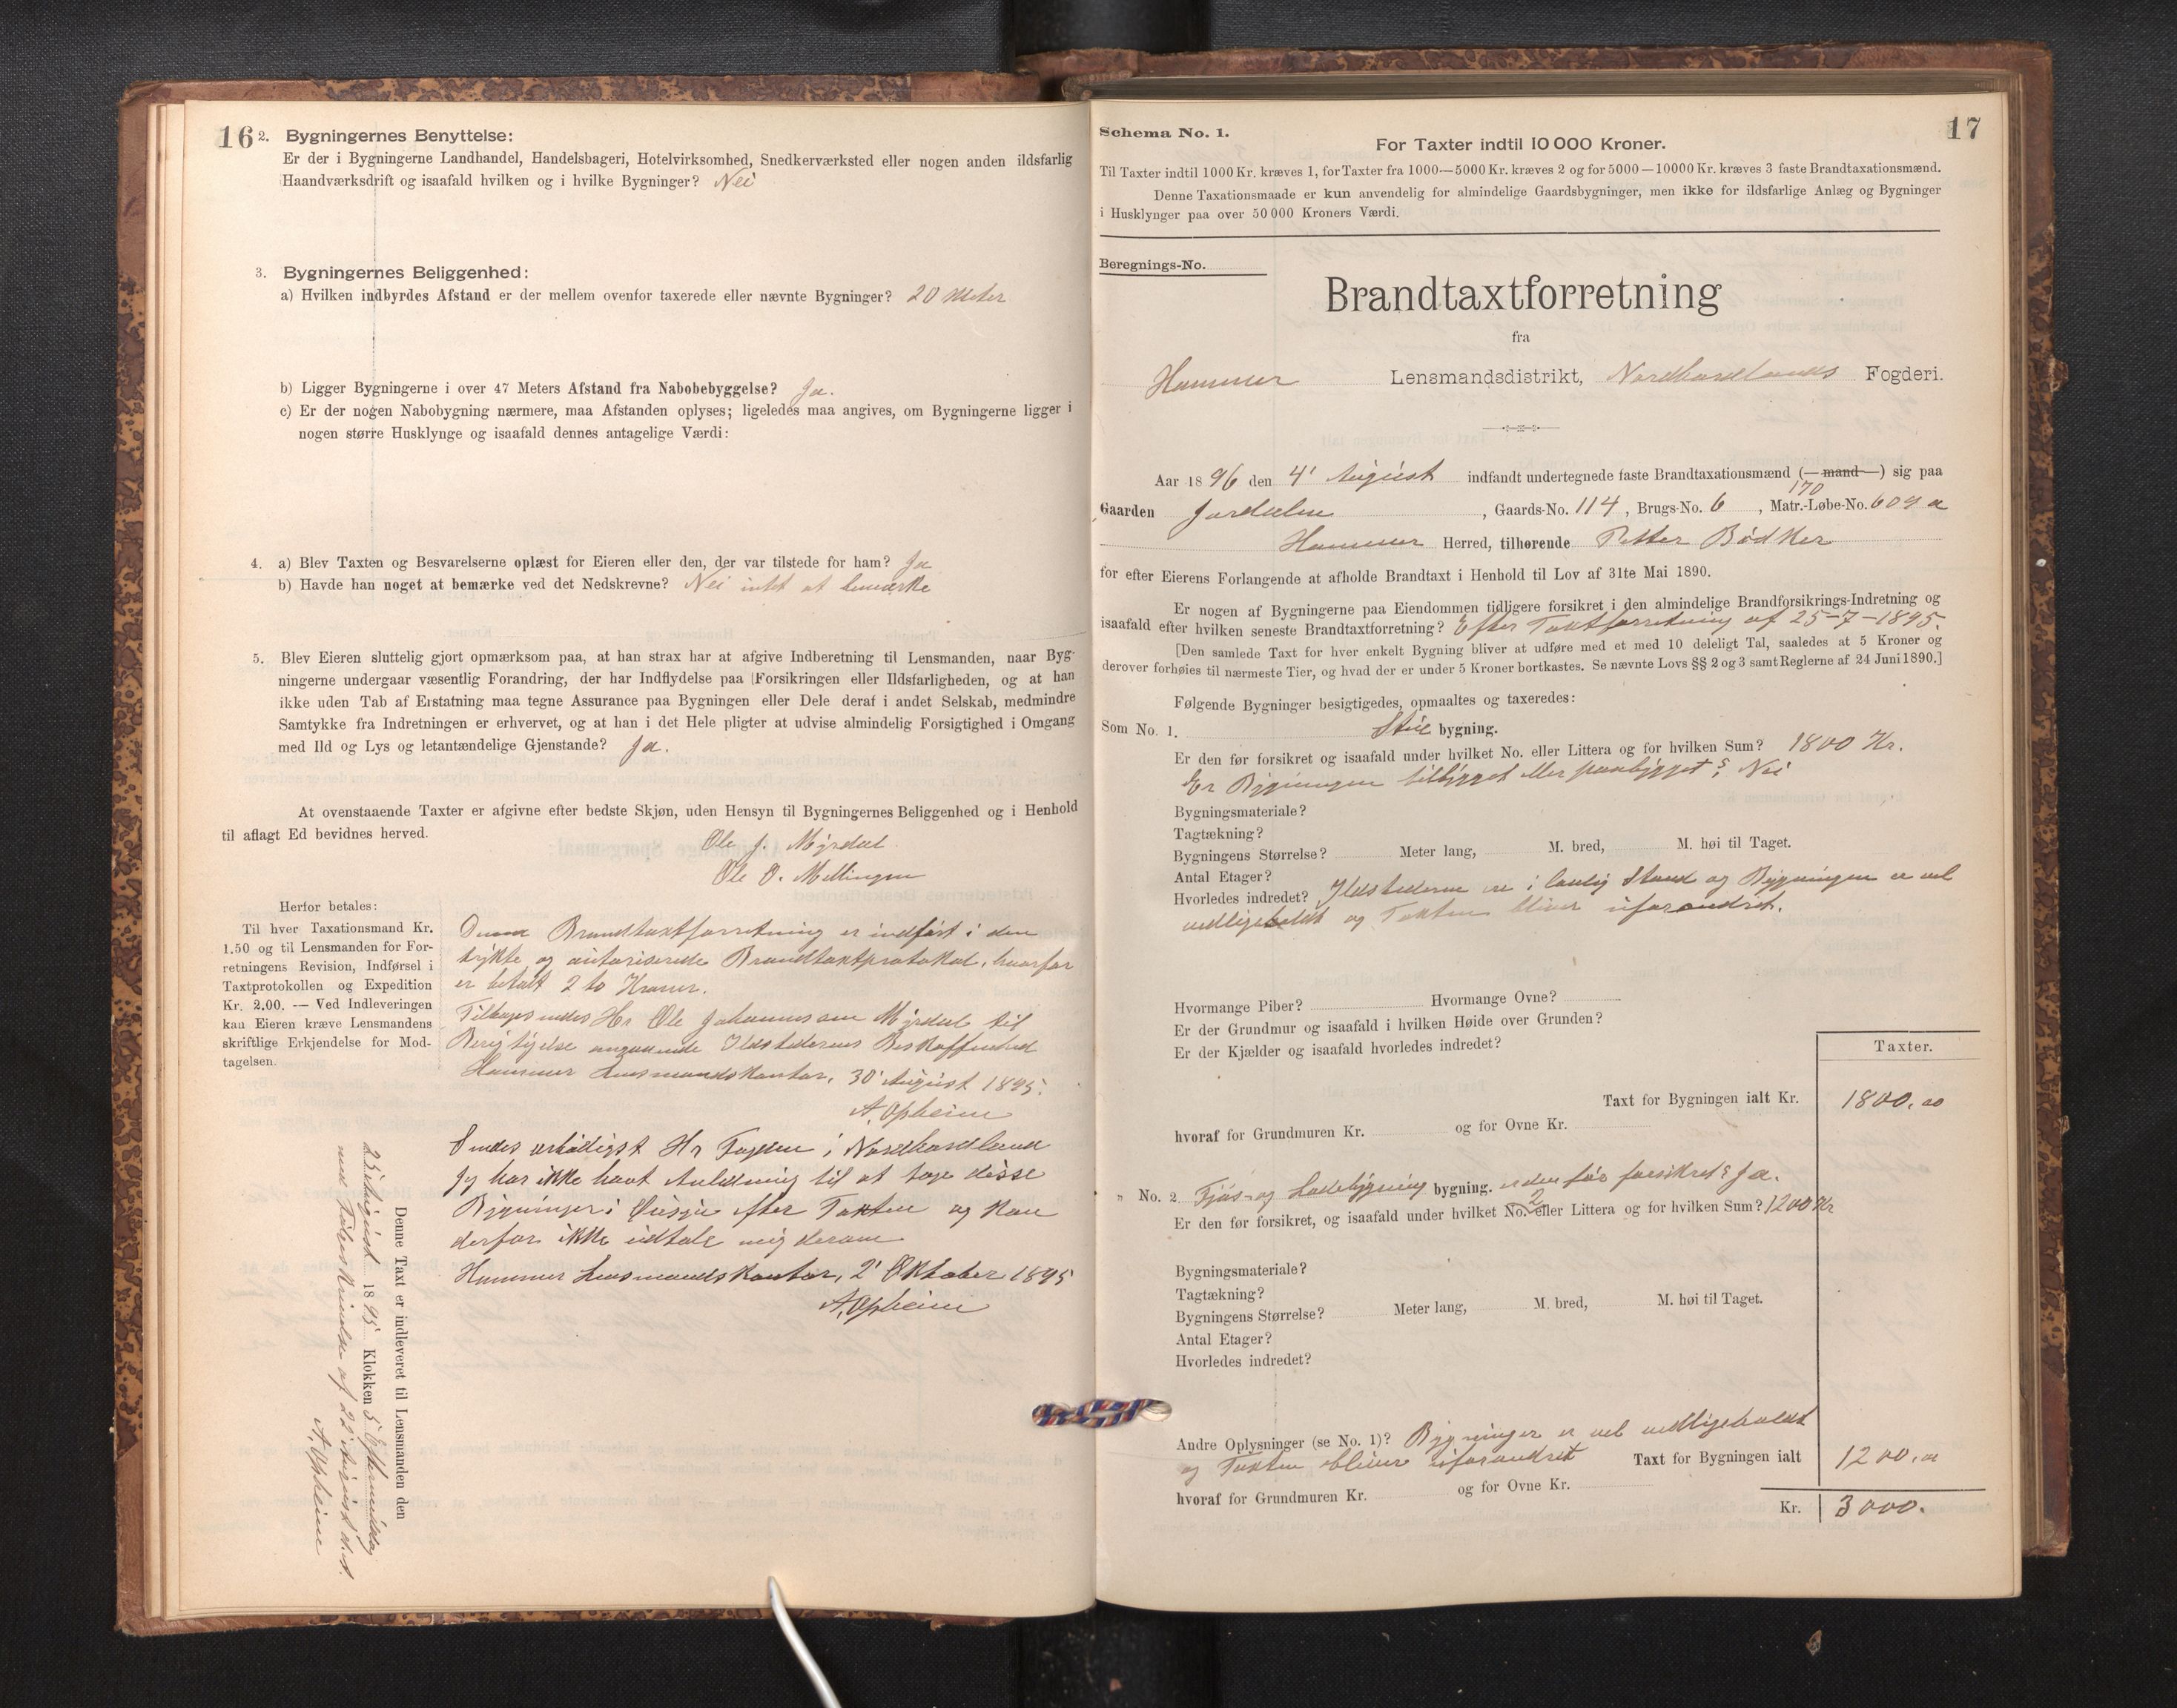 16
2. Bygningernes Benyttelse:
Er der i Bygningerne Landhandel, Handelsbageri, Hotelvirksomhed, Snedkerværksted eller nogen anden ildsfarlig
Haandværksdrift og isaafald hvilken og i hvilke Bygninger? Nei
3. Bygningernes Beliggenhed:
a) Hvilken indbyrdes Afstand er der mellem ovenfor taxerede eller nævnte Bygninger? 20 Meter
b) Ligger Bygningerne i over 47 Meters Afstand fra Nabobebyggelse? Ja.
c) Er der nogen Nabobygning nærmere, maa Afstanden oplyses; ligeledes maa angives, om Bygningerne ligger i
nogen større Husklynge og isaafald dennes antagelige Værdi:
4. a) Blev Taxten og Besvarelserne oplæst for Eieren eller den, der var tilstede for ham? Ja
b) Havde han noget at bemærke ved det Nedskrevne? Nei intet at bemærke
5. Blev Eieren sluttelig gjort opmærksom paa, at han strax har at afgive Indberetning til Lensmanden, naar Byg-
ningerne undergaar væsentlig Forandring, der har Indflydelse paa Forsikringen eller Ildsfarligheden, og at han
ikke uden Tab af Erstatning maa tegne Assurance paa Bygningen eller Dele deraf i andet Selskab, medmindre
Samtykke fra Indretningen er erhvervet, og at han i det Hele pligter at udvise almindelig Forsigtighed i Omgang
med Ild og Lys og letantændelige Gjenstande? Ja.
At ovenstaaende Taxter er afgivne efter bedste Skjøn, uden Hensyn til Bygningernes Beliggenhed og i Henhold
til aflagt Ed bevidnes herved.
Ole J. Mjrdal
Ole O. Mellingen
Herfor betales:
Til hver Taxationsmand Kr.
1.50 og til Lensmanden for For-
retningens Revision, Indførsel i
Taxtprotokollen og Expedition
Kr. 2.00. — Ved Indleveringen
kan Eieren kræve Lensmandens
skriftlige Erkjendelse for Mod-
tagelsen.
Denne Brandtaxtforretning er indført i den
trykte og autoriserede Brandtaxtprotokol, hvorfor
er betalt 2 to Kroner.
Tilbagesendes Hr Ole Johannesen Mjrdal til
Berigtigelse angaaende Ildstedernes Beskaffenhed
Hammer Lensmandskontor, 30' August 1895.
A. Opheim
Sendes ærbødigst Hr Fogden i Nordhordland
Jeg har ikke havt Anledning til at tage disse
Bygninger i Øiesyn efter Taxten og kan
derfor ikke udtale mig derom
Hammer Lensmandskontor, 2' Oktober 1895
A. Opheim
Denne Taxt er indleveret til Lensmanden den
25 August 1895 Klokken 5 Eftermiddag
med Følgeskrivelse af 22 August d. A.
A. Opheim
17
Schema No. 1.
For Taxter indtil 10 000 Kroner.
Til Taxter indtil 1000 Kr. kræves 1, for Taxter fra 1000—5000 Kr. kræves 2 og for 5000—10000 Kr. kræves 3 faste Brandtaxationsmænd.
Denne Taxationsmaade er kun anvendelig for almindelige Gaardsbygninger, men ikke for ildsfarlige Anlæg og Bygninger
i Husklynger paa over 50 000 Kroners Værdi.
Beregnings-No.
Brandtaxtforretning
fra
Hammer Lensmandsdistrikt, Nordhordlands Fogderi.
Aar 1896 den 4' August indfandt undertegnede faste Brandtaxationsmænd (—mand—) sig paa
170
Gaarden Jordalen, Gaards-No. 114, Brugs-No. 6, Matr.-Løbe-No. 609 a
Hammer Herred, tilhørende Petter Bødker
for efter Eierens Forlangende at afholde Brandtaxt i Henhold til Lov af 31te Mai 1890.
Er nogen af Bygningerne paa Eiendommen tidligere forsikret i den almindelige Brandforsikrings-Indretning og
isaafald efter hvilken seneste Brandtaxtforretning? Efter Taxtforretning af 25-7-1895.
[Den samlede Taxt for hver enkelt Bygning bliver at udføre med et med 10 deleligt Tal, saaledes at 5 Kroner og
derover forhøies til nærmeste Tier, og hvad der er under 5 Kroner bortkastes. Se nævnte Lovs §§ 2 og 3 samt Reglerne af 24 Juni 1890.]
Følgende Bygninger besigtigedes, opmaaltes og taxeredes:
Som No. 1. Stue bygning.
Er den før forsikret og isaafald under hvilket No. eller Littera og for hvilken Sum? 1800 Kr.
Er Bygningen tilbygget eller paabygget? Nei
Bygningsmateriale?
Tagtækning?
Bygningens Størrelse? Meter lang, M. bred, M. høi til Taget.
Antal Etager?
Hvorledes indredet? Ildstederne er i lovlig Stand og Bygningen er vel
vedligeholdt og Taxten bliver uforandret.
Hvormange Piber? Hvormange Ovne?
Er der Grundmur og isaafald i hvilken Høide over Grunden?
Er der Kjælder og isaafald hvorledes indredet?
Taxter.
Taxt for Bygningen ialt Kr. 1800,00
hvoraf for Grundmuren Kr. og for Ovne Kr.
" No. 2 Fjøs- og Ladebygning bygning. er den før forsikret? Ja.
Er den før forsikret, og isaafald under hvilket No. 2 eller Littera og for hvilken Sum? 1200 Kr
Bygningsmateriale?
Tagtækning?
Bygningens Størrelse? Meter lang, M. bred, M. høi til Taget.
Antal Etager?
Hvorledes indredet?
Andre Oplysninger (se No. 1)? Bygninger er vel vedligeholdt
og Taxten bliver uforandret Taxt for Bygningen ialt 1200,00
hvoraf for Grundmuren Kr. og for Ovne Kr.
Kr. 3000.